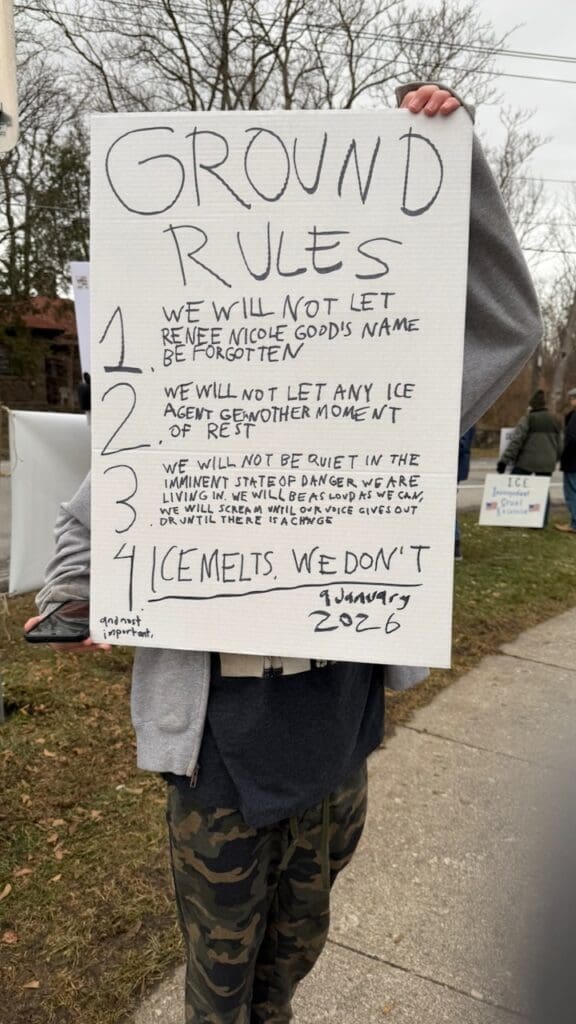 GROUND
RULES
1. WE WILL NOT LET
RENEE NICOLE GOOD'S NAME
BE FORGOTTEN
2. WE WILL NOT LET ANY ICE
AGENT GET ANOTHER MOMENT
OF REST
3. WE WILL NOT BE QUIET IN THE
IMMINENT STATE OF DANGER WE ARE
LIVING IN. WE WILL BE AS LOUD AS WE CAN,
WE WILL SCREAM UNTIL OUR VOICE GIVES OUT
OR UNTIL THERE IS A CHNGE
4. ICE MELTS. WE DON'T
and most
important,
9 January
2026
I.C.E
Cruel